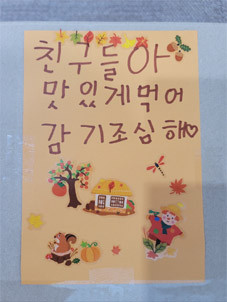 친구들아
맛있게먹어
감기조심해♡